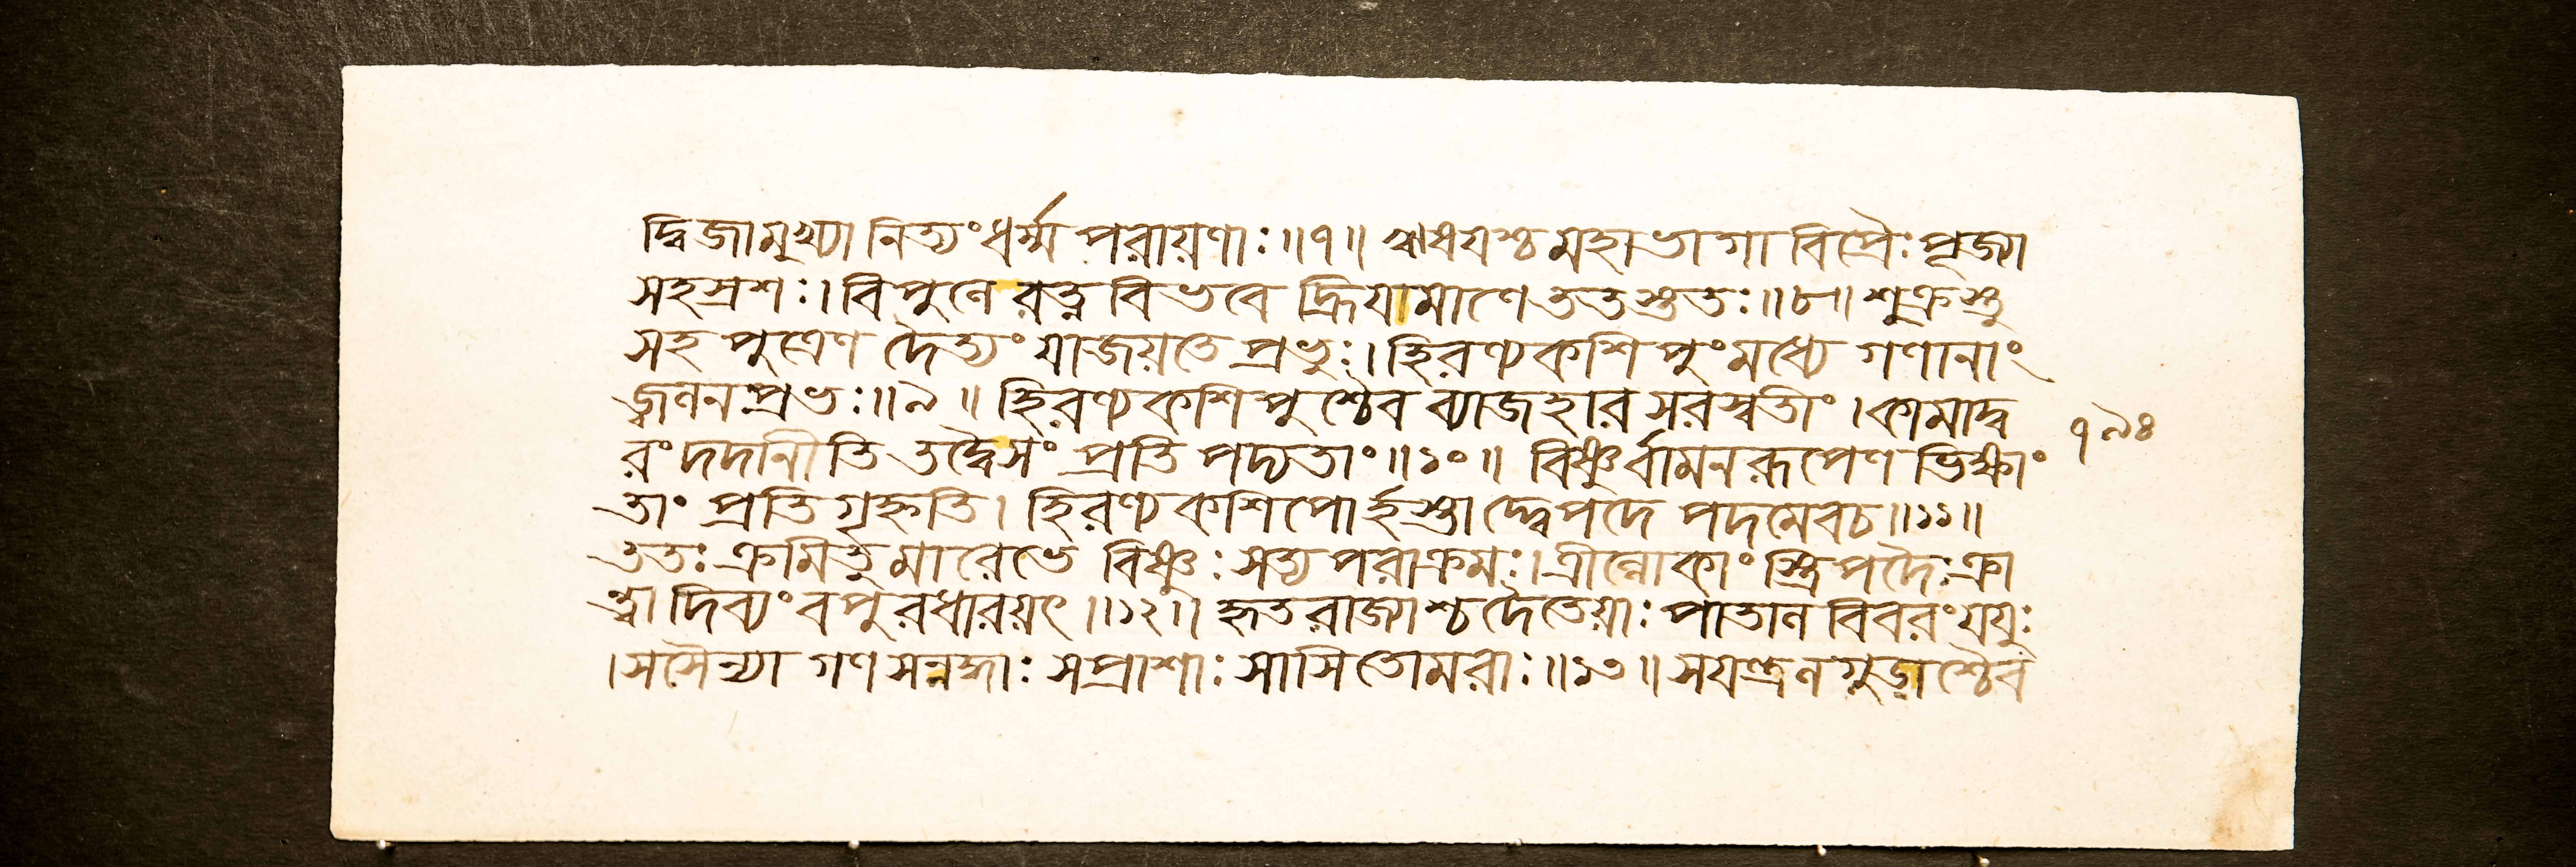 দ্বিজামুখ্যা নিত্যং ধর্ম্ম পরায়ণাঃ॥৭॥ ঋষয়শ্চ মহাভাগা বিপ্রৈঃ পূজ্যা
সহস্রশঃ। বিপুলে রত্ন বিভবে দ্ধ্রিয়ামাণে ততস্ততঃ॥৮॥ শুক্রস্তু
সহ পুত্রেণ দৈত্যং যাজয়তে প্রভুঃ। হিরণ্যকশিপুং মধ্যে গণানাং
জ্বলন প্রভঃ॥৯॥ হিরণ্যকশিপুশ্চৈব ব্যাজহার সরস্বতীং। কামাদ্ব
রং দদানীতি তদ্বৈসং প্রতি পদ্যতাং॥১০॥ বিষ্ণুর্বামনরূপেণ ভিক্ষাং
তাং প্রতিগৃহ্নতি। হিরণ্যকশিপোর্হস্তাদ্দ্বেপদে পদমেবচ॥১১॥
ততঃ ক্রমিতুমারেভে বিষ্ণুঃ সত্যপরাক্রমঃ। ত্রীল্লোকাং স্ত্রিপদৈঃ ক্রা
ন্ত্বা দিব্যং বপুরধারয়ৎ॥১২॥ হৃতরাজ্যাশ্চ দৈতেয়াঃ পাতাল বিবরং যযুঃ
। সসৈন্যা গণ সন্নদ্ধাঃ সপ্রাশাঃ সাসিতোমরাঃ॥১৩॥ সযন্ত্রলগুড়াশ্চৈব
৭৯৪